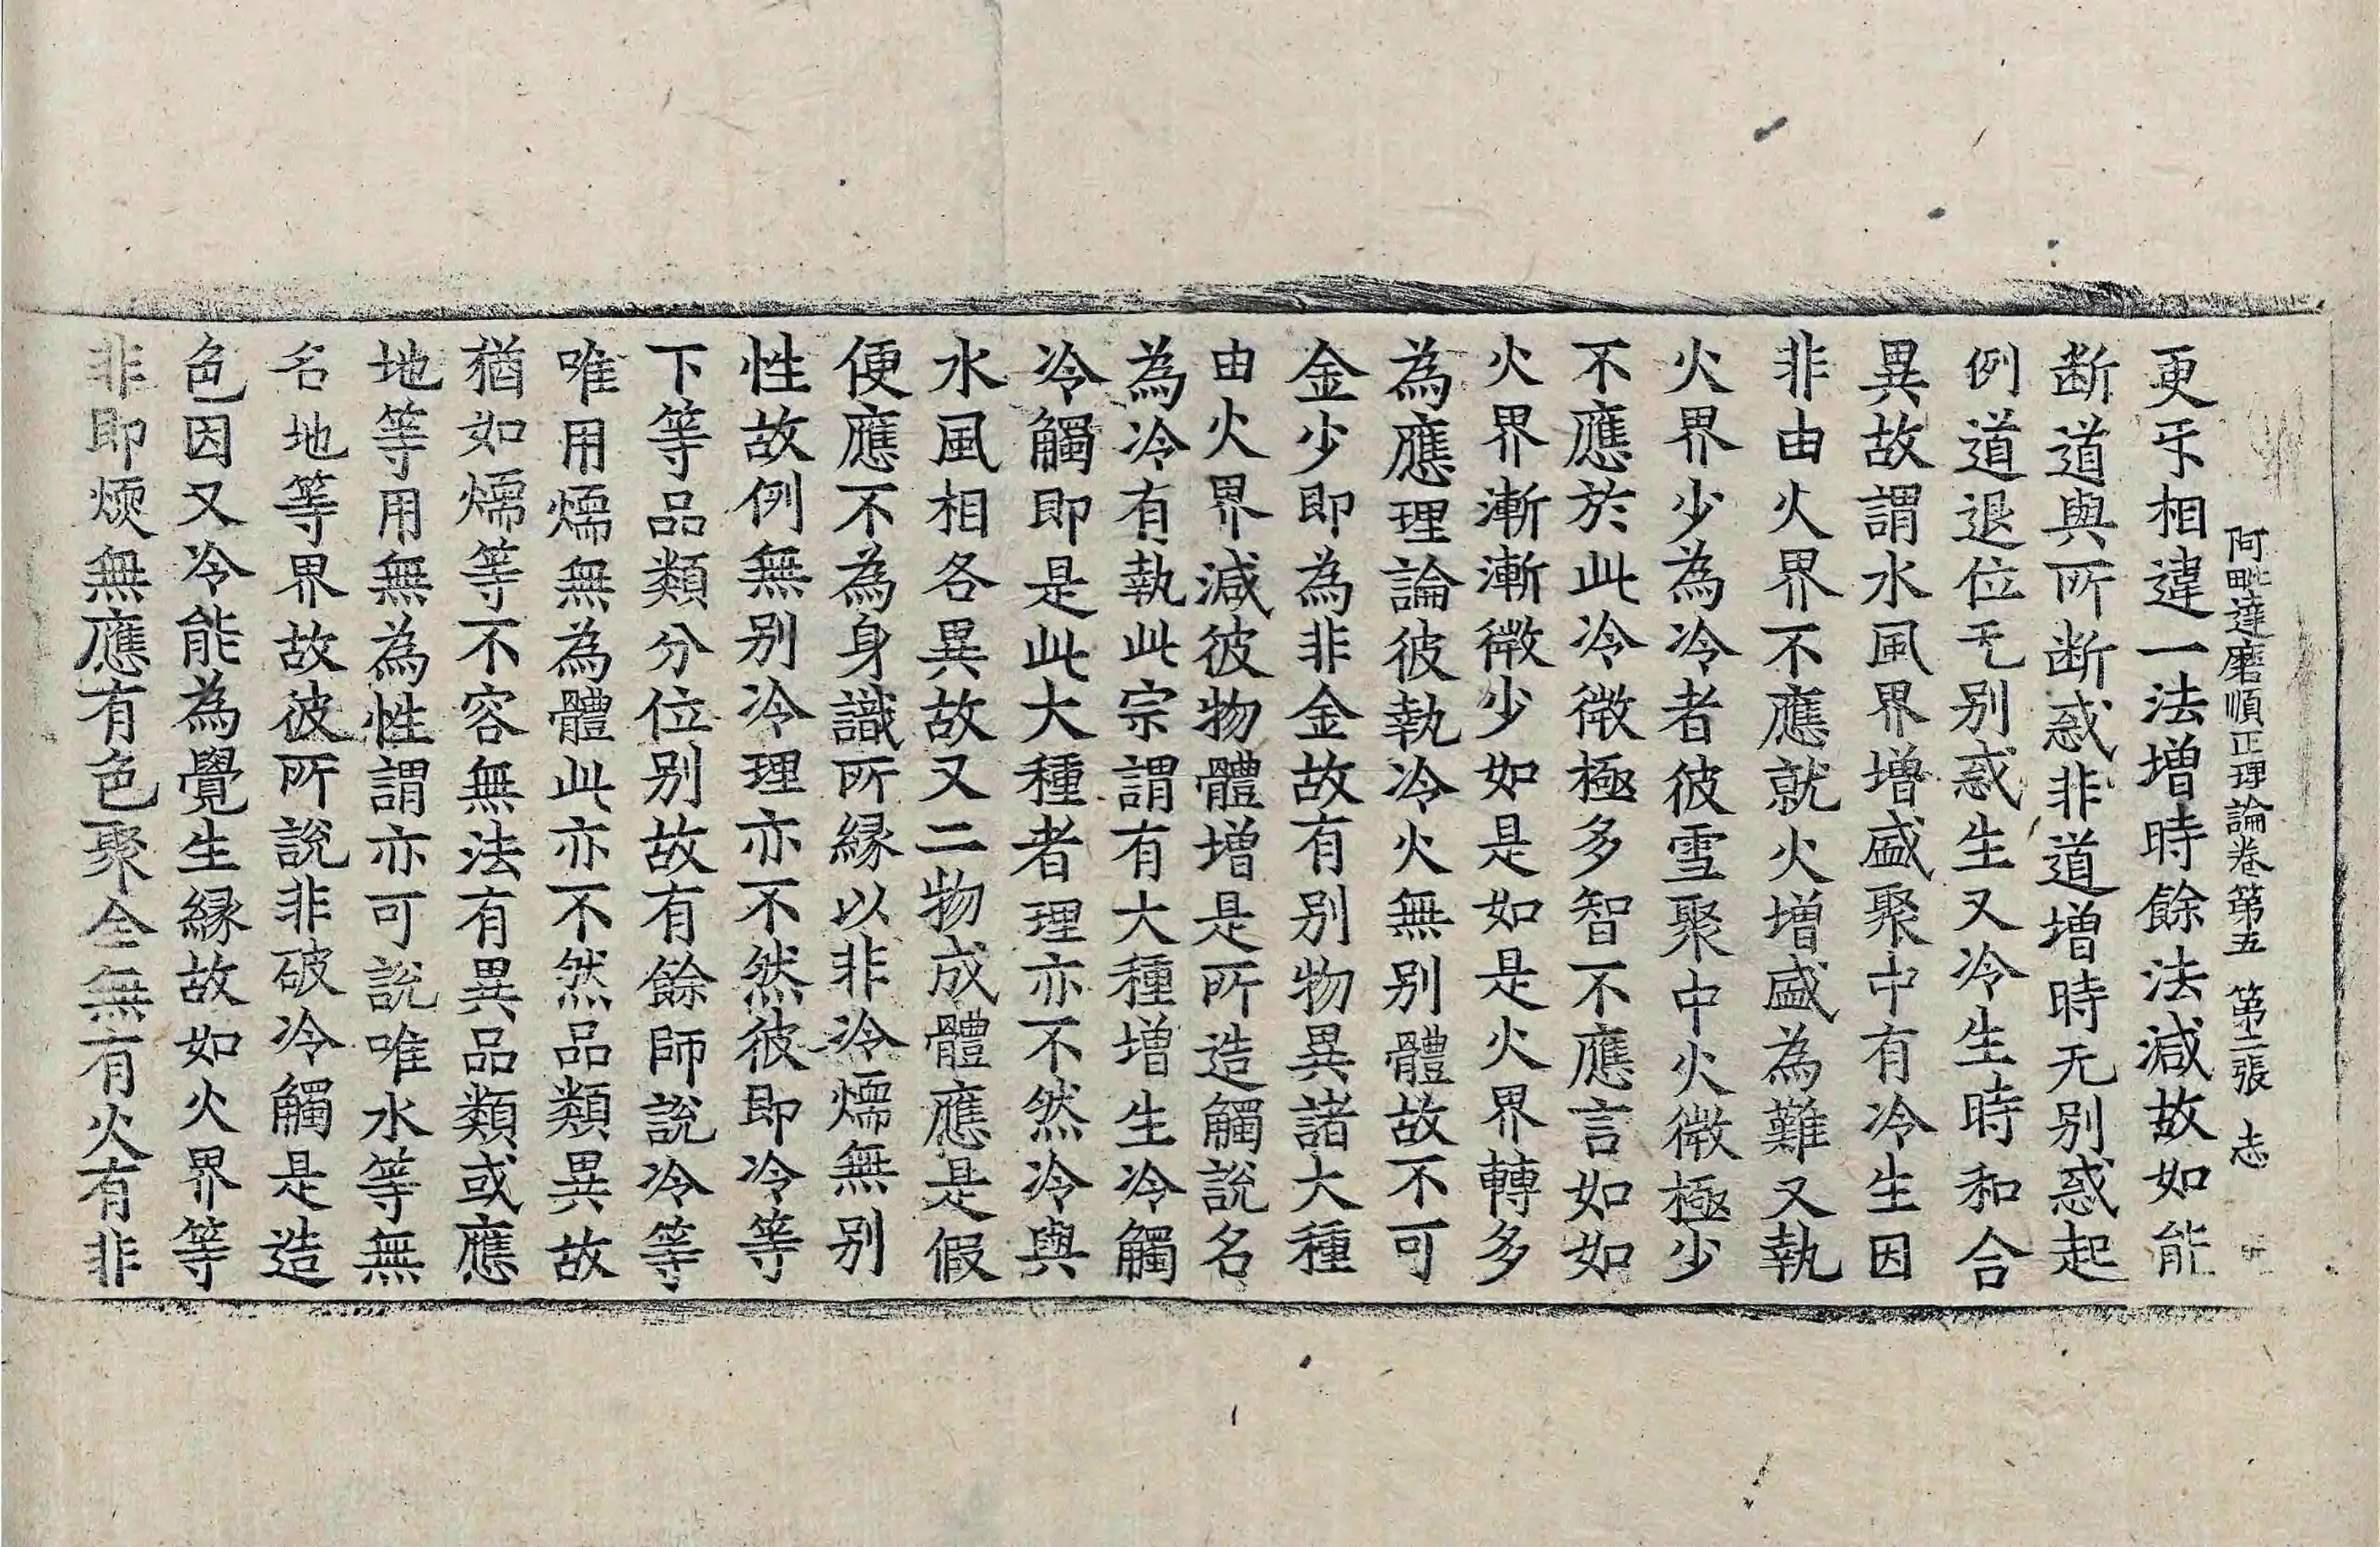 阿毗達磨順正理論卷第五 第二張 志
更㸦相違一法增時餘法減故如能
断道與所断惑非道增時无别惑起
例道退位无别惑生又冷生時和合
異故謂水風界增盛聚中有冷生因
非由火界不應就火增盛為難又執
火界少為冷者彼雪聚中火微極少
不應於此冷微極多智不應言如如
火界漸漸微少如是如是火界轉多
為應理論彼執冷火無别體故不可
金少即為非金故有别物異諸大種
由火界減彼物體增是所造觸說名
為冷有執此宗謂有大種增生冷觸
冷觸即是此大種者理亦不然冷與
水風相各異故又二物成體應是假
便應不為身識所緣以非冷燸無别
性故例無别冷理亦不然彼即冷等
下等品類分位别故有餘師說冷等
唯用燸無為體此亦不然品類異故
猶如燸等不容無法有異品類或應
地等用無為性謂亦可說唯水等無
名地等界故彼所說非破冷觸是造
色因又冷能為覺生緣故如火界等
非即煗無應有色聚全無有火有非